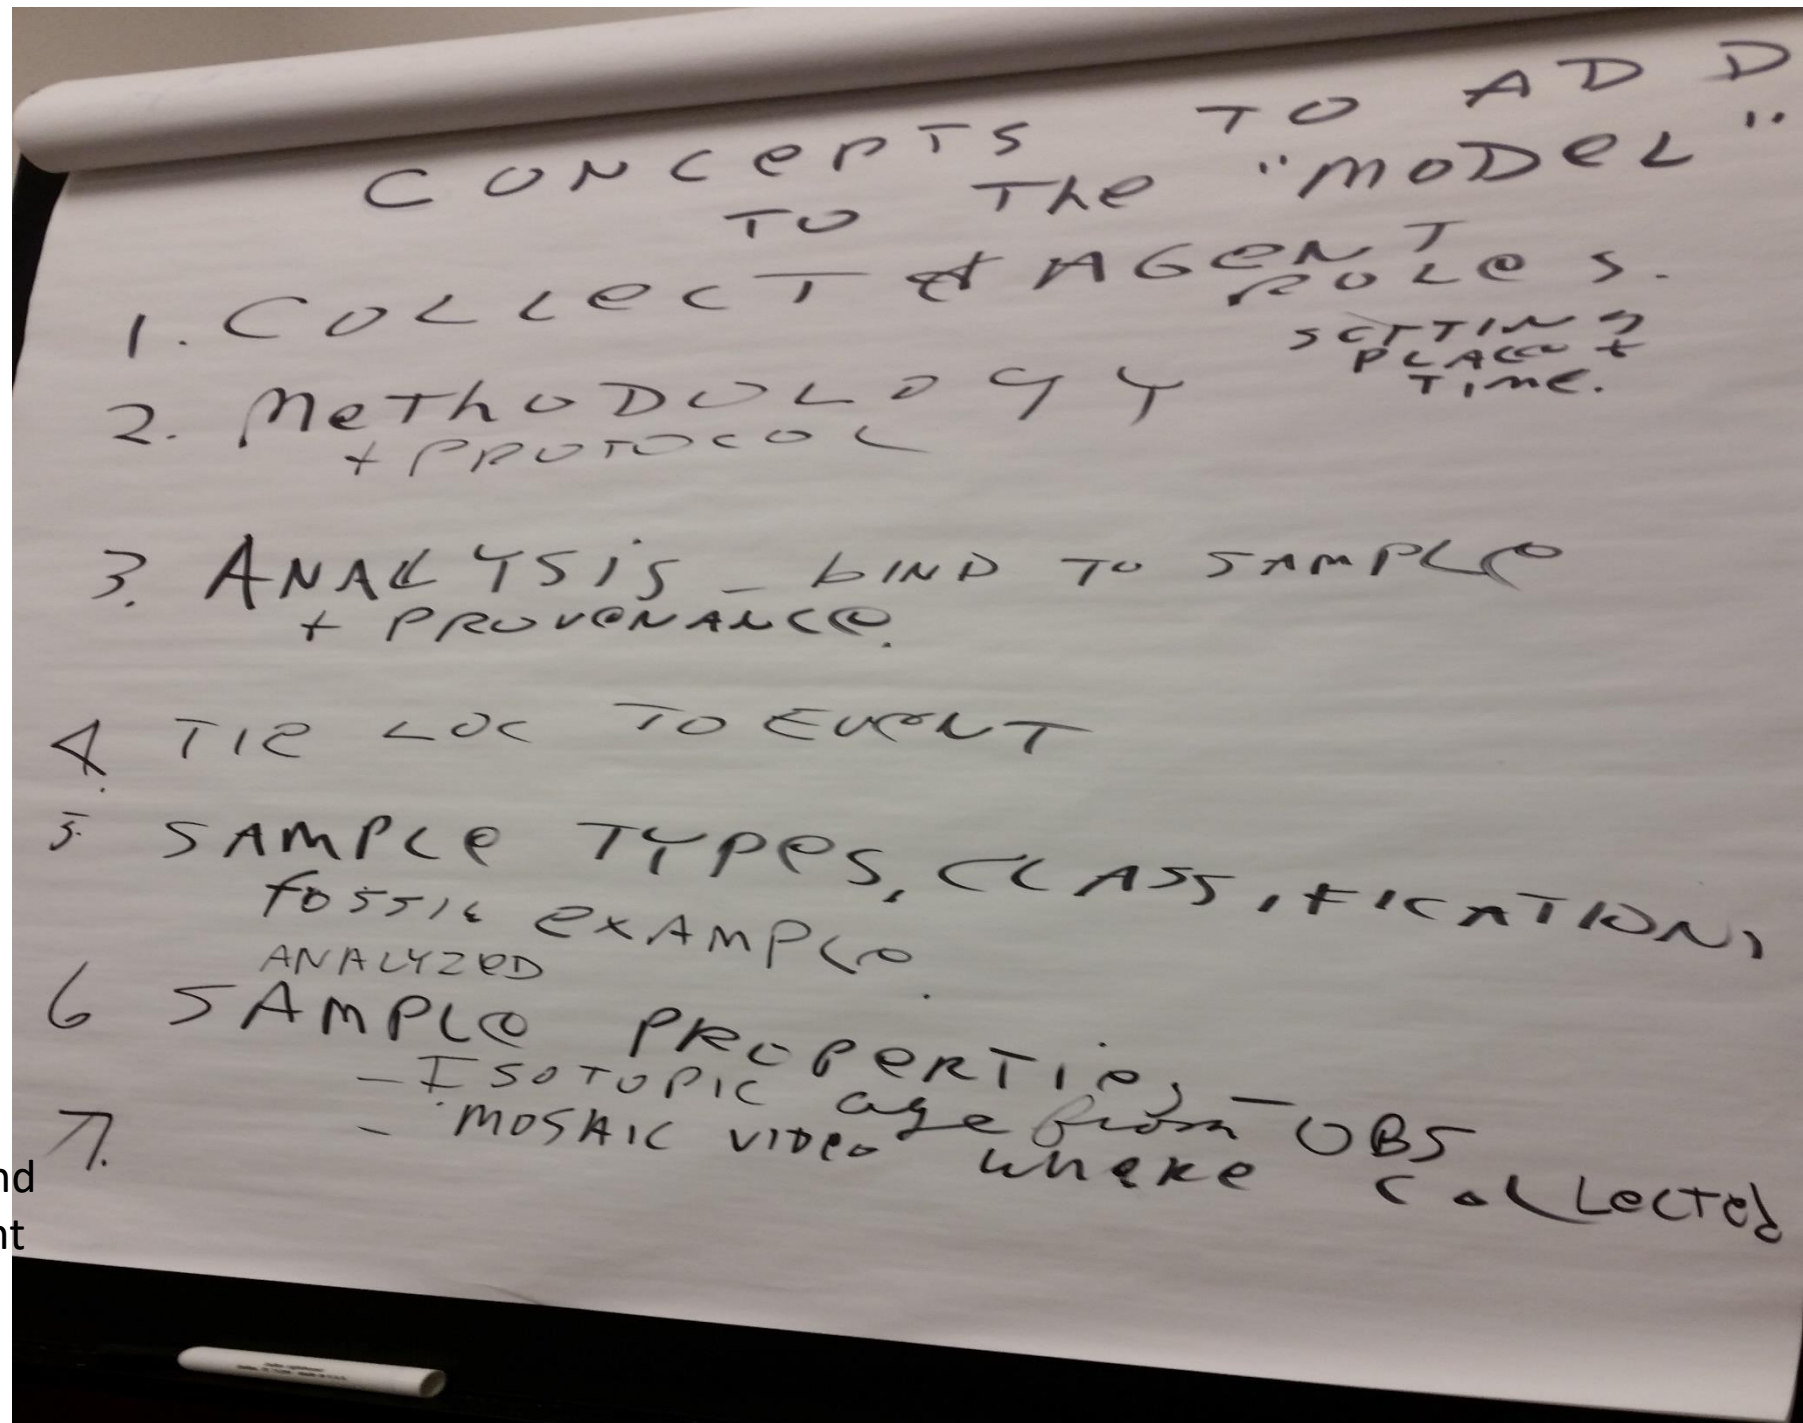 CONCEPTS TO ADD
TO The "MODEL"
1. COLLECT & AGENT
ROLES.
SETTING
PLACE +
TIME.
2. MeThODOLOGY
+ PROTOCOL
3. ANALYSIS - bIND TO SAMPLe
+ PROVeNANCe.
4. TIe LOC TO EVeNT
5. SAMPLe TYPeS, CLASSIFICATIONS
fOSSIL exAMPLe.
ANALYZeD
6 SAMPLe PROPeRTieS - OBS
- ISOTOPIC age from
- MOSAIC VIDeo wheRe CoLLecTed
7.
nd
nt